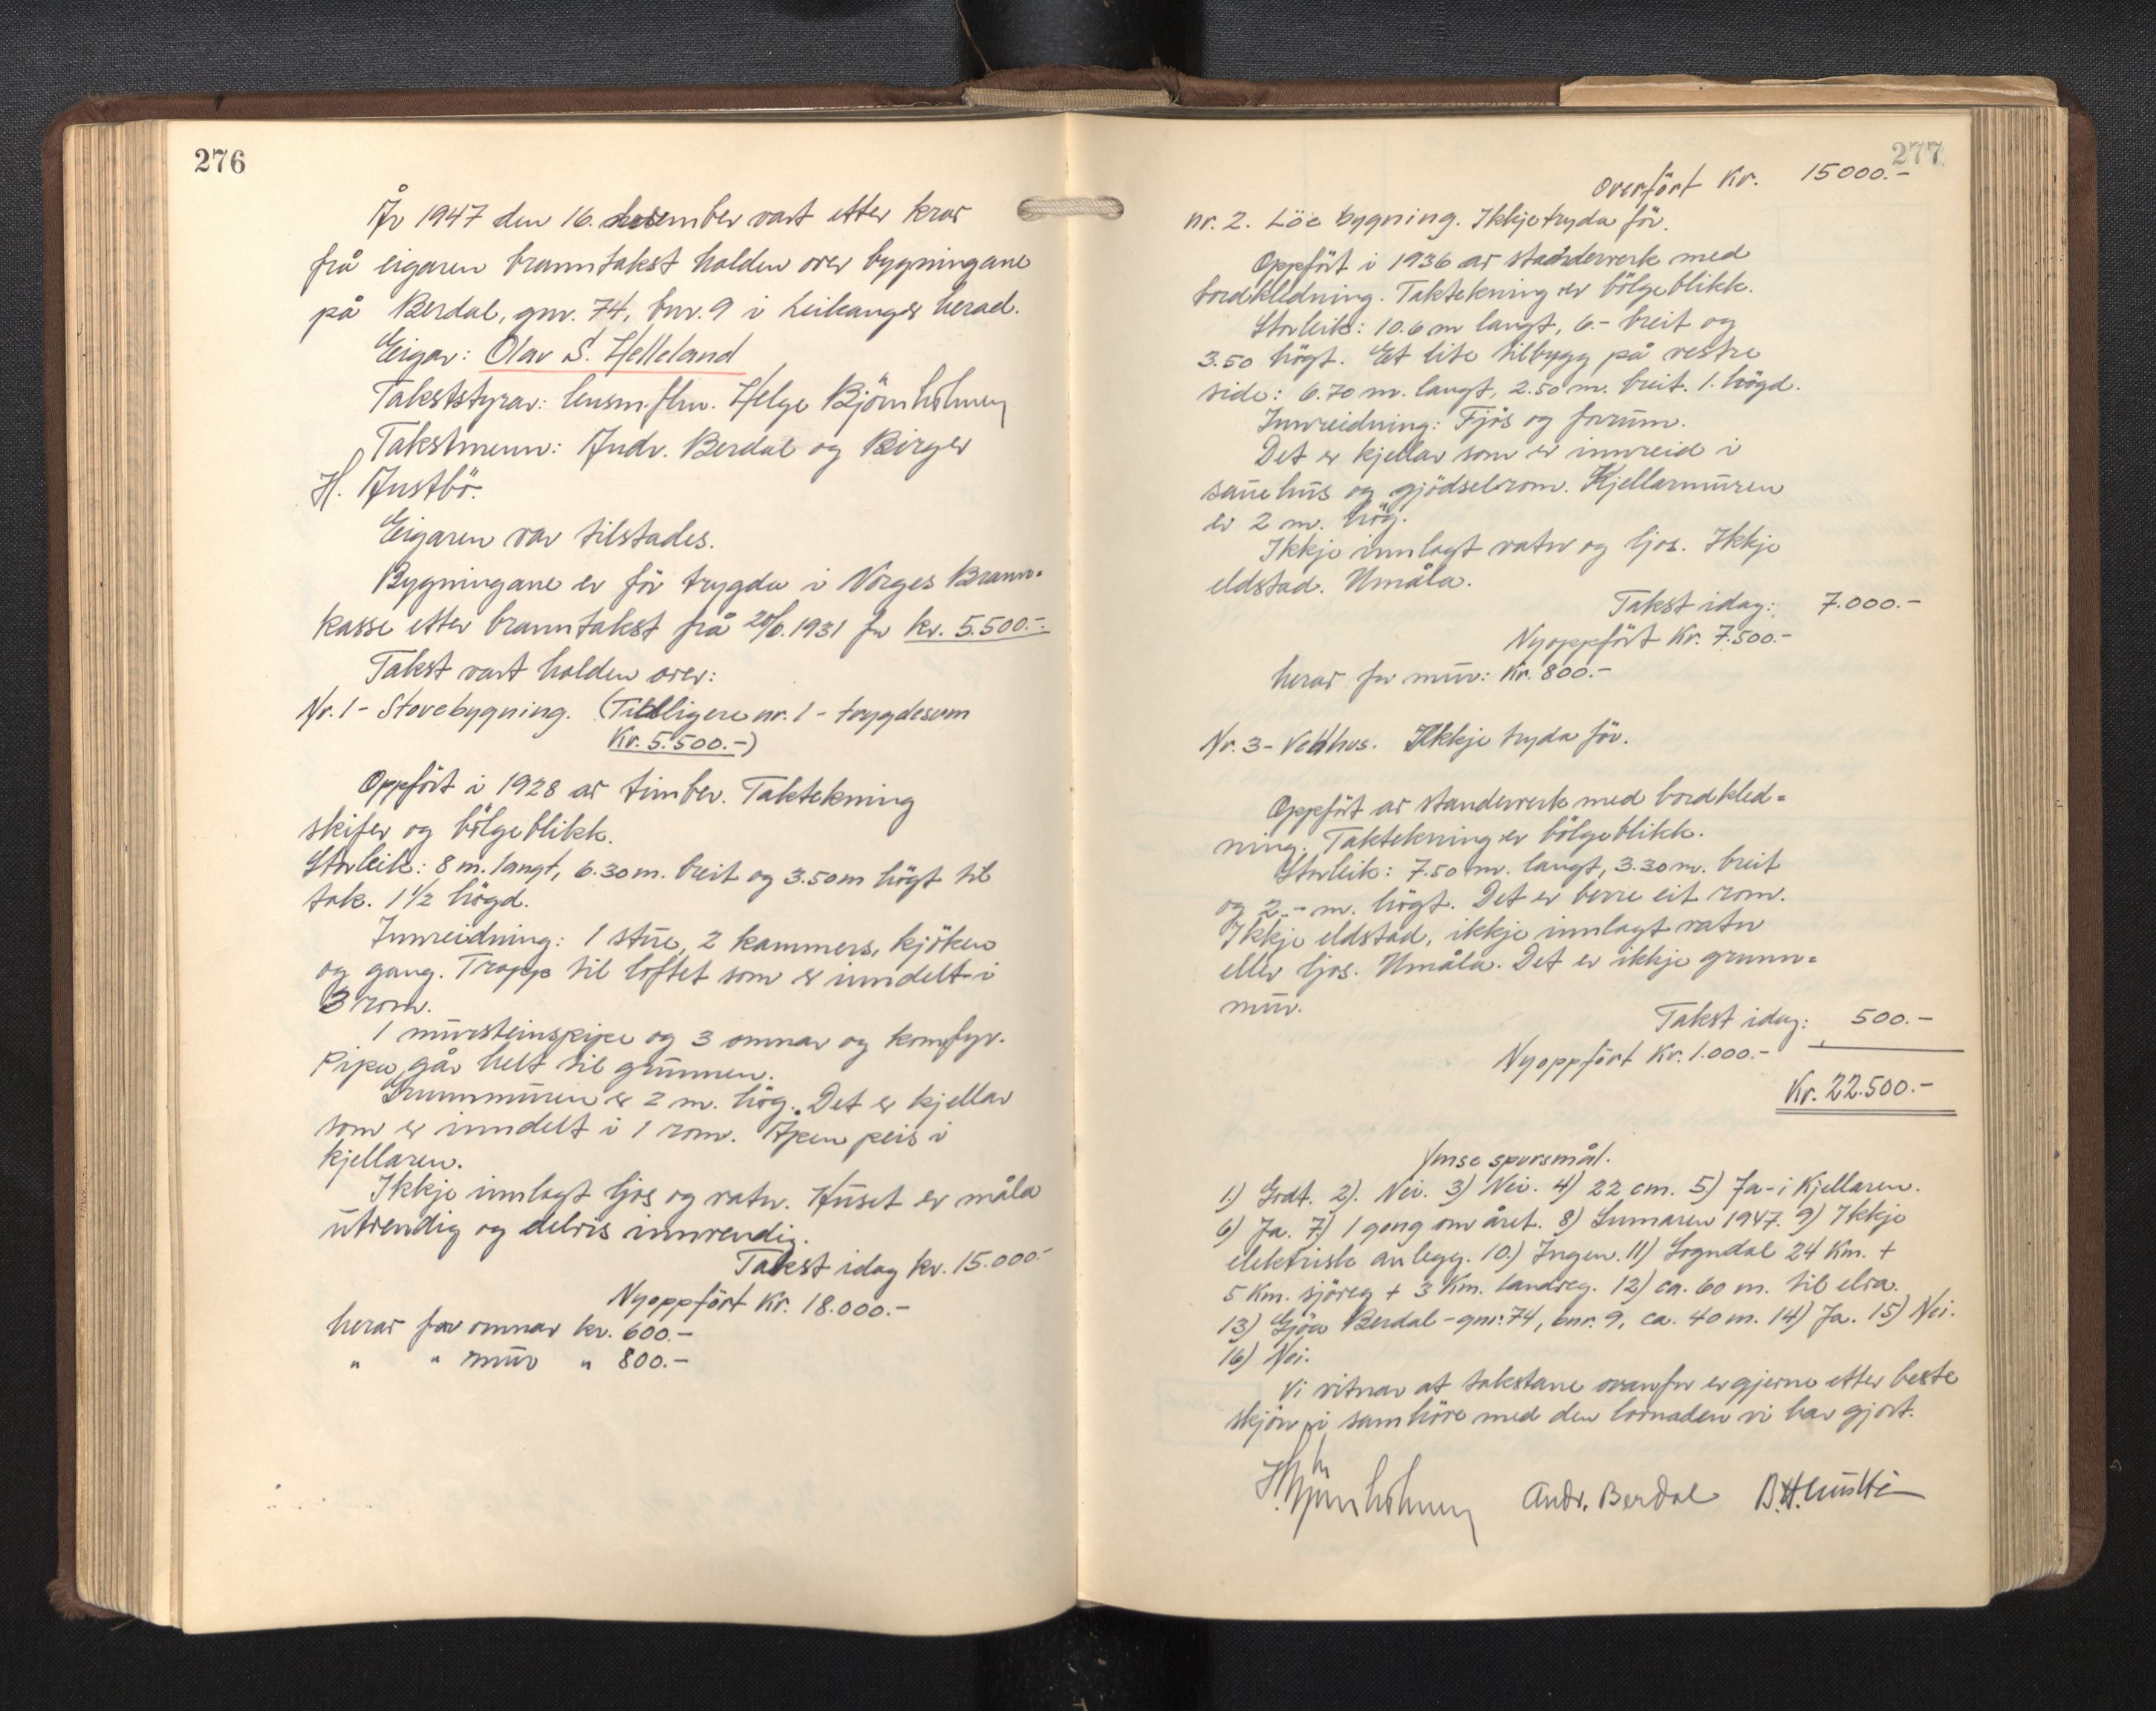 276
År 1947 den 16. desember vart etter krav
frå eigaren branntakst halden over bygningane
på Berdal, gnr. 74, bnr. 9 i Leikanger herad.
Eigar: Olav S. Helleland
Takststyrar: lensm.flm. Helge Björnholmen
Takstmenn: Andr. Berdal og Birger
H. Austbö.
Eigaren var tilstades.
Bygningane er för trygda i Norges Brann-
kasse etter branntakst frå 20/6. 1931 for kr. 5.500.-.
Takst vart halden over:
Nr. 1 - Stovebygning. (Tidligere nr. 1 - trygdesum
Kr. 5.500.-)
Oppfört i 1928 av timber. Taktekning
skifer og bölgeblikk.
Storleik: 8 m. langt, 6.30 m. breit og 3.50 m högt til
tak. 1 1/2 högd.
Innreidning: 1 stue, 2 kammers, kjöken
og gang. Trapp til loftet som er inndelt i
3 rom.
1 mursteinspipe og 3 omnar og komfyr.
Pipa går helt til grunnen.
Grunnmuren er 2 m. hög. Det er kjellar
som er inndelt i 1 rom. Åpen peis i
kjellaren.
Ikkje innlagt ljos og vatn. Huset er måla
utvendig og delvis innvendig.
Takst idag kr. 15.000.-
Nyoppfört Kr. 18.000.-
herav for omnar kr. 600.-
" " mur " 800.-
277
Overfört Kr. 15000.-
nr. 2. Löe bygning. Ikkje tryda för.
Oppfört i 1936 av standerverk med
bordkledning. Taktekning er bölgeblikk.
Storleik: 10.6 m langt, 6.- breit og
3.50 högt. Et lite tilbygg på vestre
side: 6.70 m. langt, 2.50 m. breit. 1. högd.
Innreidning: Fjös og forrum.
Det er kjellar som er innreid i
sauehus og gjödselrom. Kjellarmuren
er 2 m. hög.
Ikkje innlagt vatn og ljos. Ikkje
eldstad. Umåla.
Takst idag: 7.000.-
Nyoppfört Kr. 7.500.-
herav for mur: Kr. 800.-
Nr. 3 - Vedhus. Ikkje tryda för.
Oppfört av standerverk med bordkled-
ning. Taktekning er bölgeblikk.
Storleik: 7.50 m. langt, 3.30 m. breit
og 2.- m. högt. Det er berre eit rom.
Ikkje eldstad, ikkje innlagt vatn
eller ljos. Umåla. Det er ikkje grunn-
mur.
Takst idag: 500.-
Nyoppfört Kr. 1.000.-
Kr. 22.500.-
Ymse spursmål.
1) Godt. 2). Nei. 3) Nei. 4) 22 cm. 5) Ja - i Kjellaren.
6) Ja. 7) 1 gong om året. 8) Sumaren 1947. 9) Ikkje
elektrisk anlegg. 10.) Ingen. 11) Sogndal 24 Km. +
5 Km. sjöveg + 3 Km. landveg. 12) ca. 60 m. til elva.
13) Gjöa Berdal - gnr. 74, bnr. 9, ca. 40 m. 14) Ja. 15) Nei.
16) Nei.
Vi vitnar at takstane ovanfor er gjerne etter beste
skjön i samhöve med den lovnaden vi har gjort.
H. Björnholmen Andr. Berdal B. H. Austbö